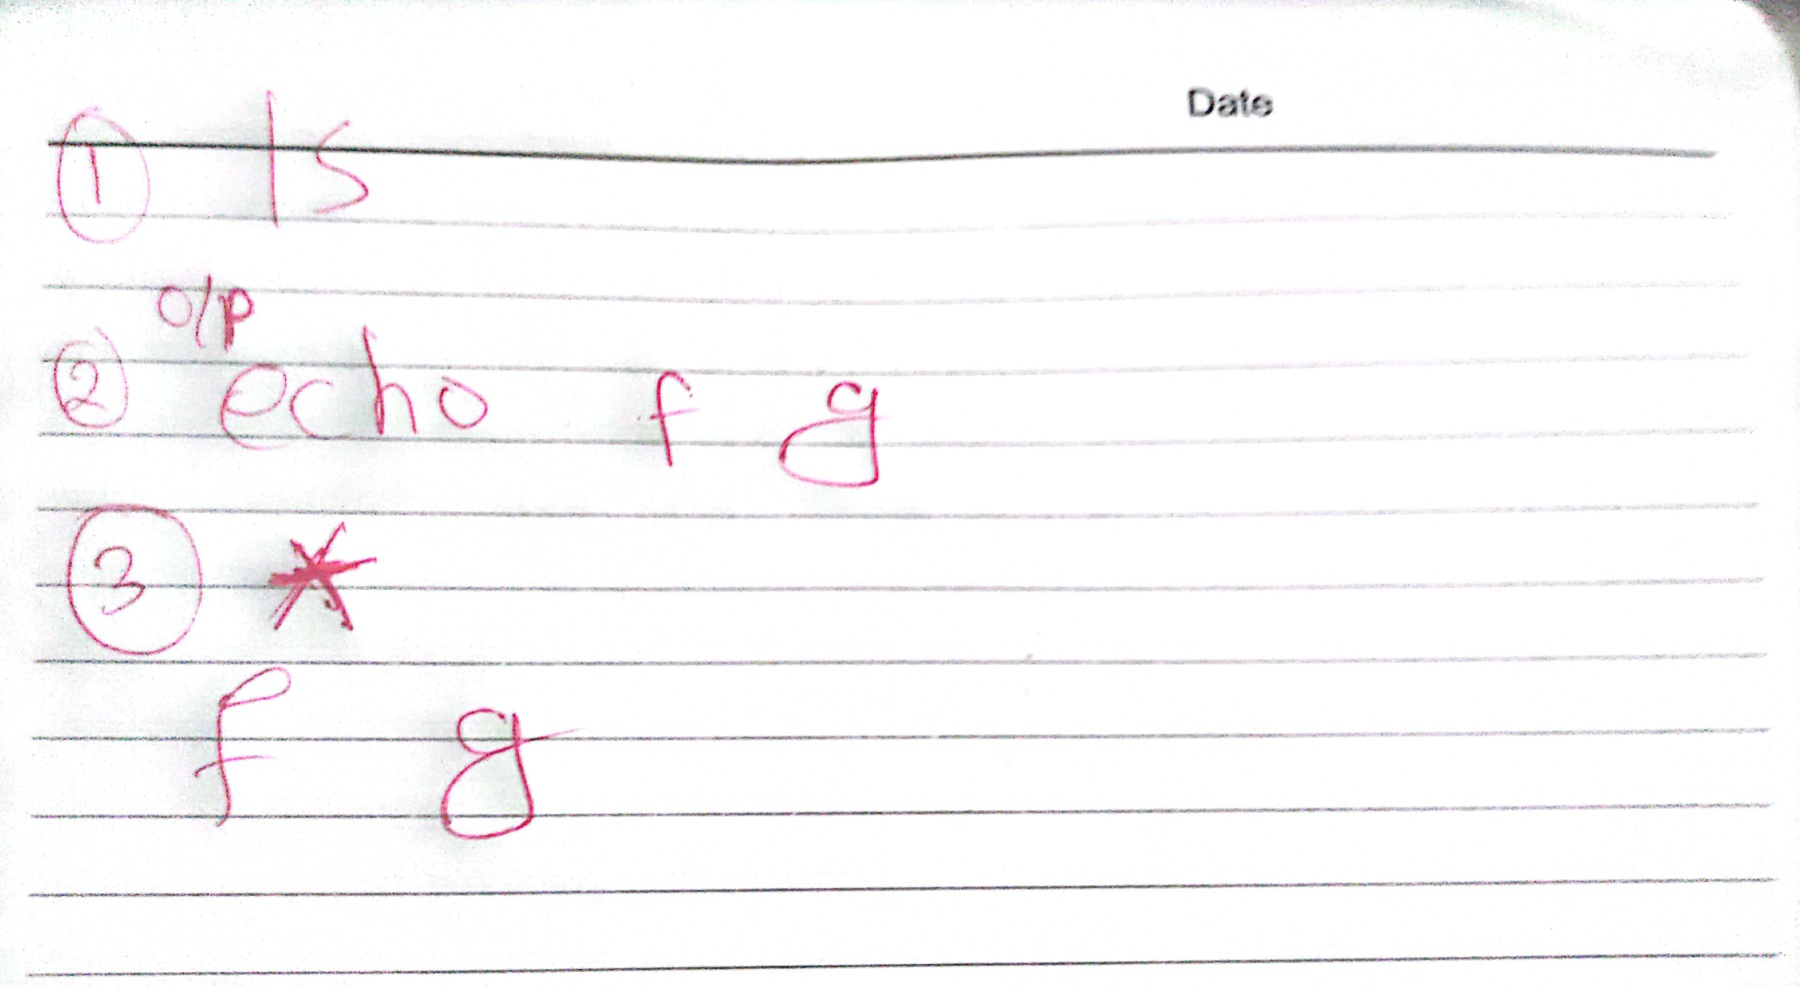 Date
① ls
o/p
② echo f g
③ *
f g